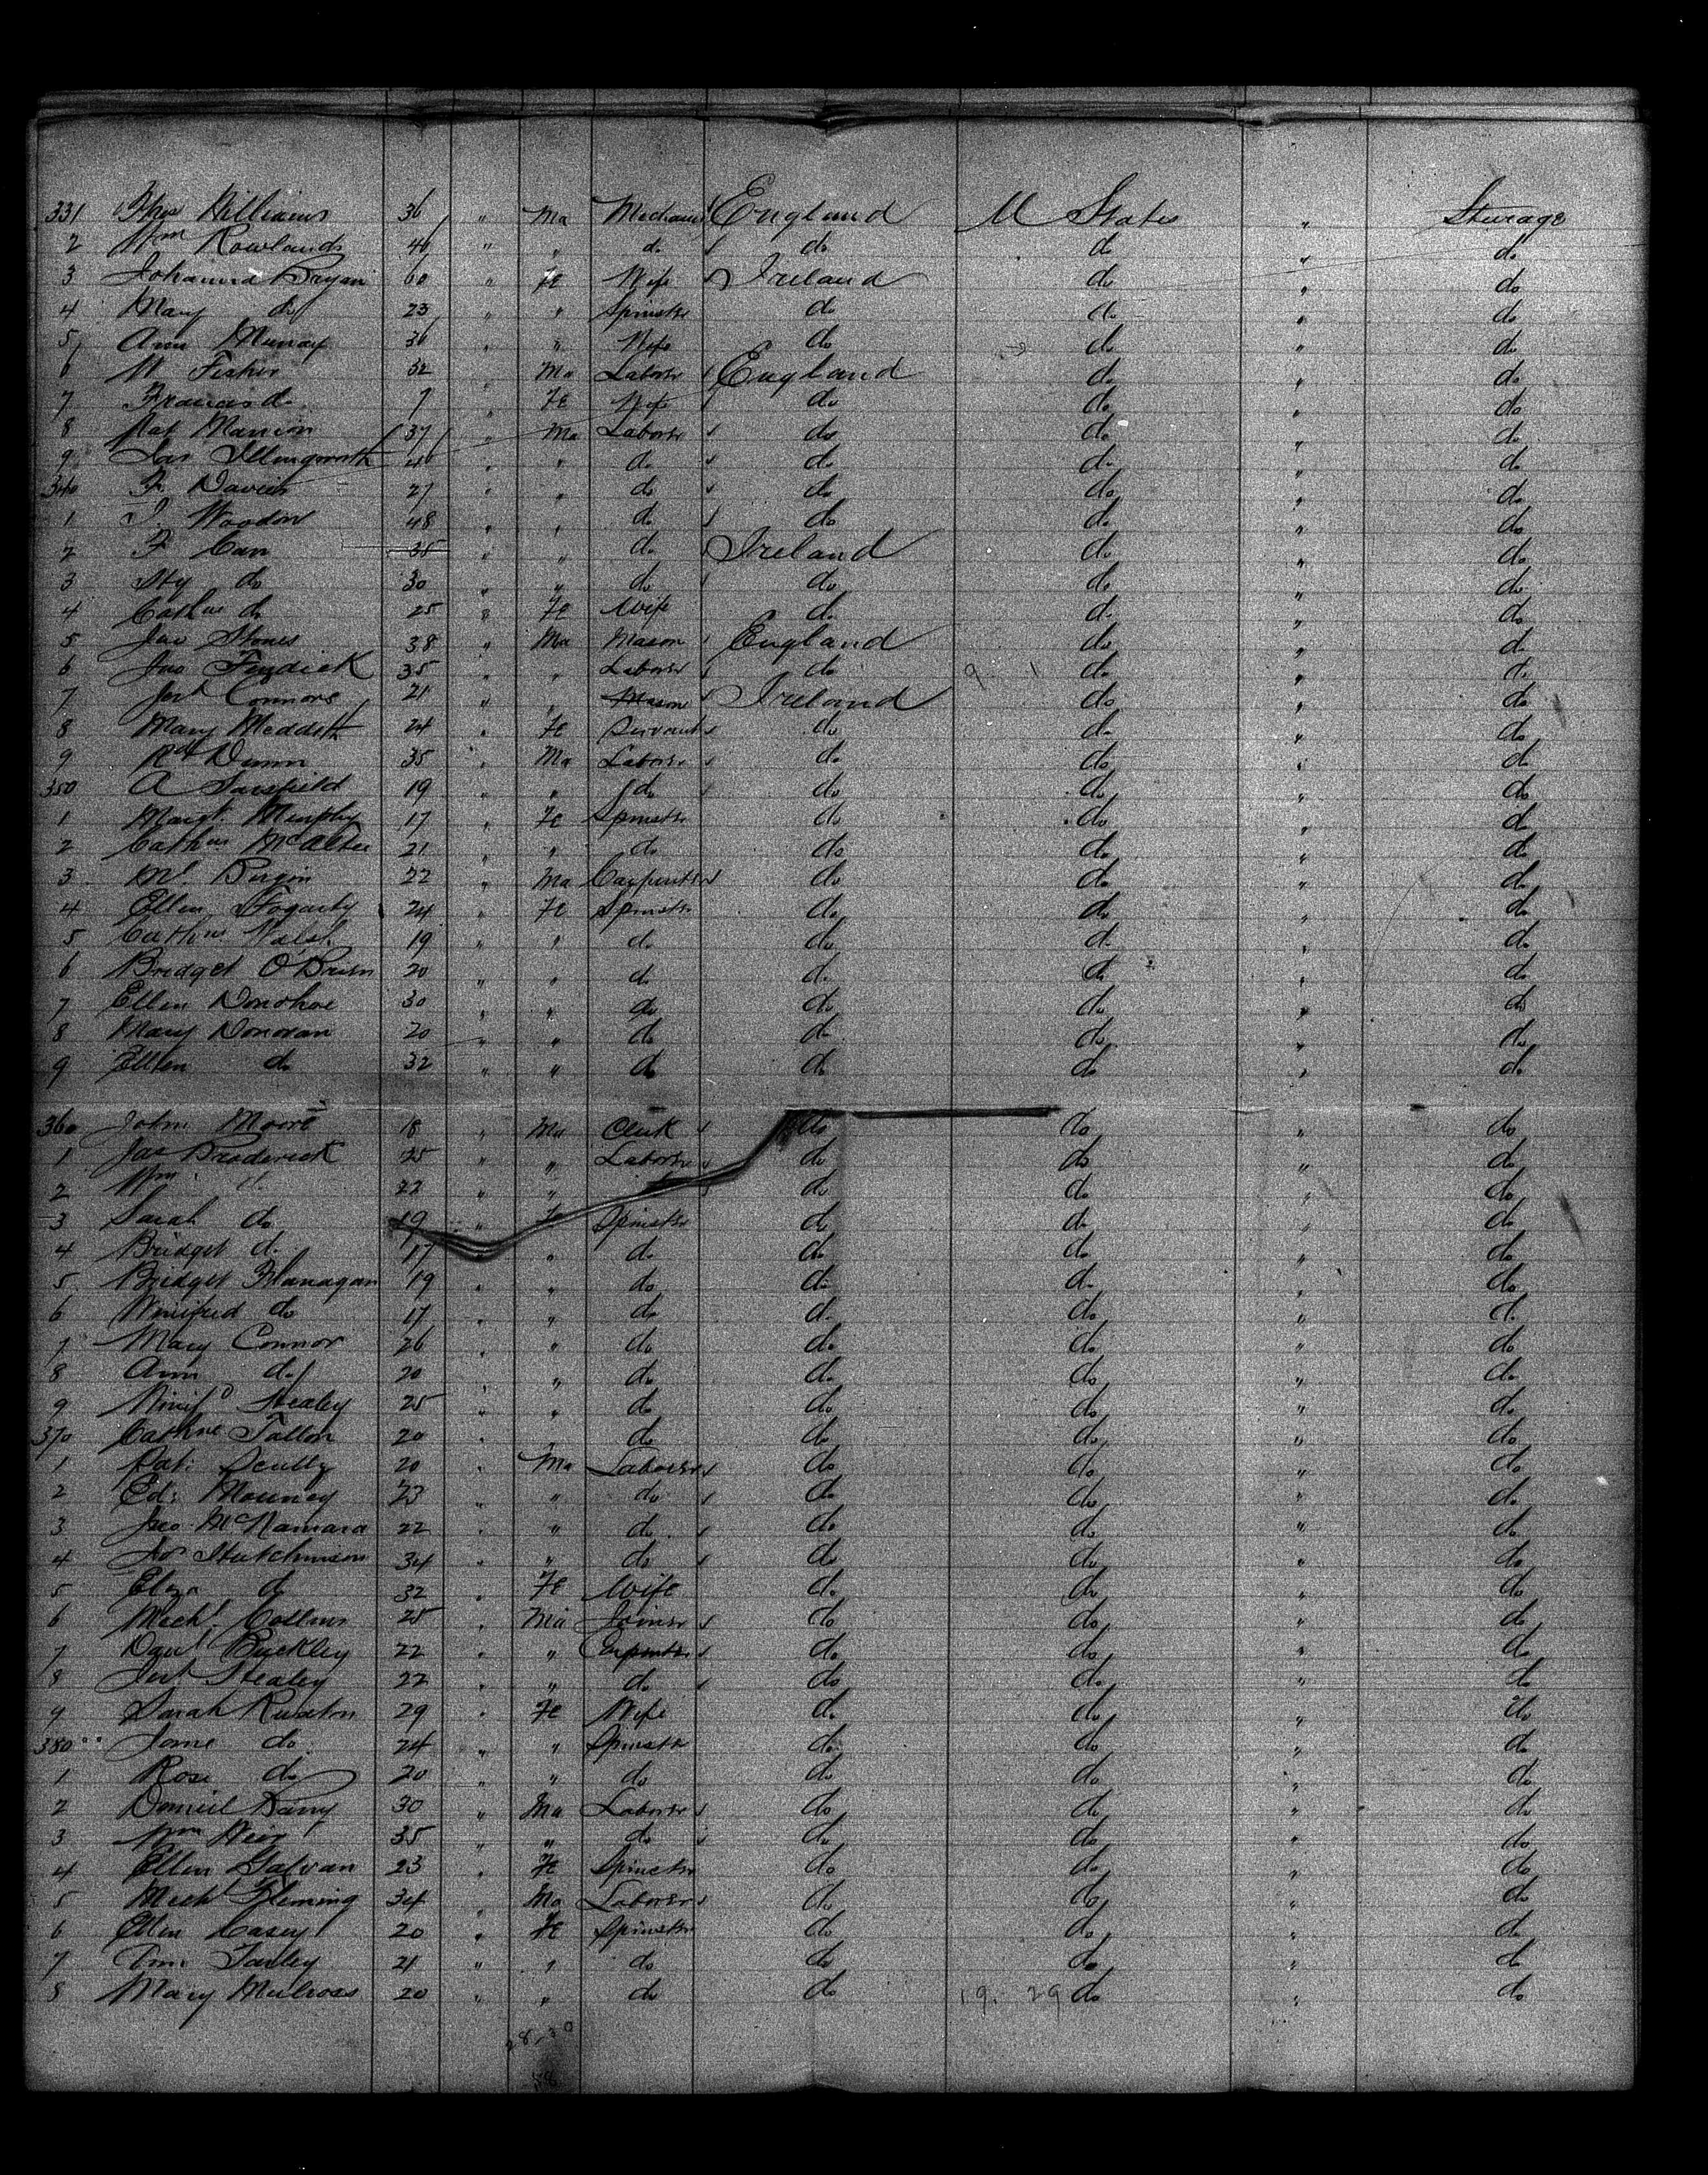 331 Thos Williams 36 " Ma Mechanic England U States " Steerage
2 Wm Rowlands 40 " " do do do " do
3 Johanna Bryan 60 " Fe Wife Ireland do " do
4 Mary do 23 " " Spinster do do " do
5 Ann Murray 36 " " Wife do do " do
6 W Fisher 32 " Ma Laborer England do " do
7 Francis do 9 " Fe Wife do do " do
8 Pat Manion 37 " Ma Laborer do do " do
9 Jas Illingworth 40 " " do do do " do
340 F. Davies 27 " " do do do " do
1 J. Woodon 48 " " do do do " do
2 F Carr 35 " " do Ireland do " do
3 do 30 " " do do do " do
4 Cathne do 25 " Fe Wife do do " do
5 Jas Stones 38 " Ma Mason England do " do
6 Jno Fendick 35 " " Laborer do do " do
7 Jno Connors 21 " " Mason Ireland do " do
8 Mary Meddith 24 " Fe Servant do do " do
9 Rd Dunn 35 " Ma Laborer do do " do
350 A Sarsfield 19 " " do do do " do
1 Margt Murphy 17 " Fe Spinster do do " do
2 Cathne McAtee 21 " " do do do " do
3 Ml. Bergin 22 " Ma Carpenter do do " do
4 Ellen Fogarty 24 " Fe Spinster do do " do
5 Cathne Walsh 19 " " do do do " do
6 Bridget O'Brien 20 " " do do do " do
7 Ellen Donohoe 30 " " do do do " do
8 Mary Donovan 20 " " do do do " do
9 Ellen do 32 " " do do do " do
360 John Moore 18 " Ma Clerk do do " do
1 Jas Broderick 25 " " Laborer do do " do
2 Wm " 22 " " do do do " do
3 Sarah do 19 " Fe Spinster do do " do
4 Bridget do 17 " " do do do " do
5 Bridget Flanagan 19 " " do do do " do
6 Winifred do 17 " " do do do " do
7 Mary Connor 26 " " do do do " do
8 Ann do 20 " " do do do " do
9 Winifd Healey 25 " " do do do " do
370 Cathne Fallon 20 " " do do do " do
1 Pat: Scully 20 " Ma Laborer do do " do
2 Ed: Mooney 23 " " do do do " do
3 Jno McNamara 22 " " do do do " do
4 Jos Hutchinson 34 " " do do do " do
5 Eliza do 32 " Fe Wife do do " do
6 Michl. Collins 25 " Ma Joiner do do " do
7 Danl Buckley 22 " " Carpenter do do " do
8 Jno Healey 22 " " do do do " do
9 Sarah Ruxton 29 " Fe Wife do do " do
380 Jane do 24 " " Spinster do do " do
1 Rose do 20 " " do do do " do
2 Daniel Barry 30 " Ma Laborer do do " do
3 Wm Weir 35 " " do do do " do
4 Ellen Galvan 23 " Fe Spinster do do " do
5 Mich Fleming 34 " Ma Laborer do do " do
6 Ellen Casey 20 " Fe Spinster do do " do
7 Farley 21 " " do do do " do
8 Mary Mulross 20 " " do do 19. 29 do " do
28,30
58